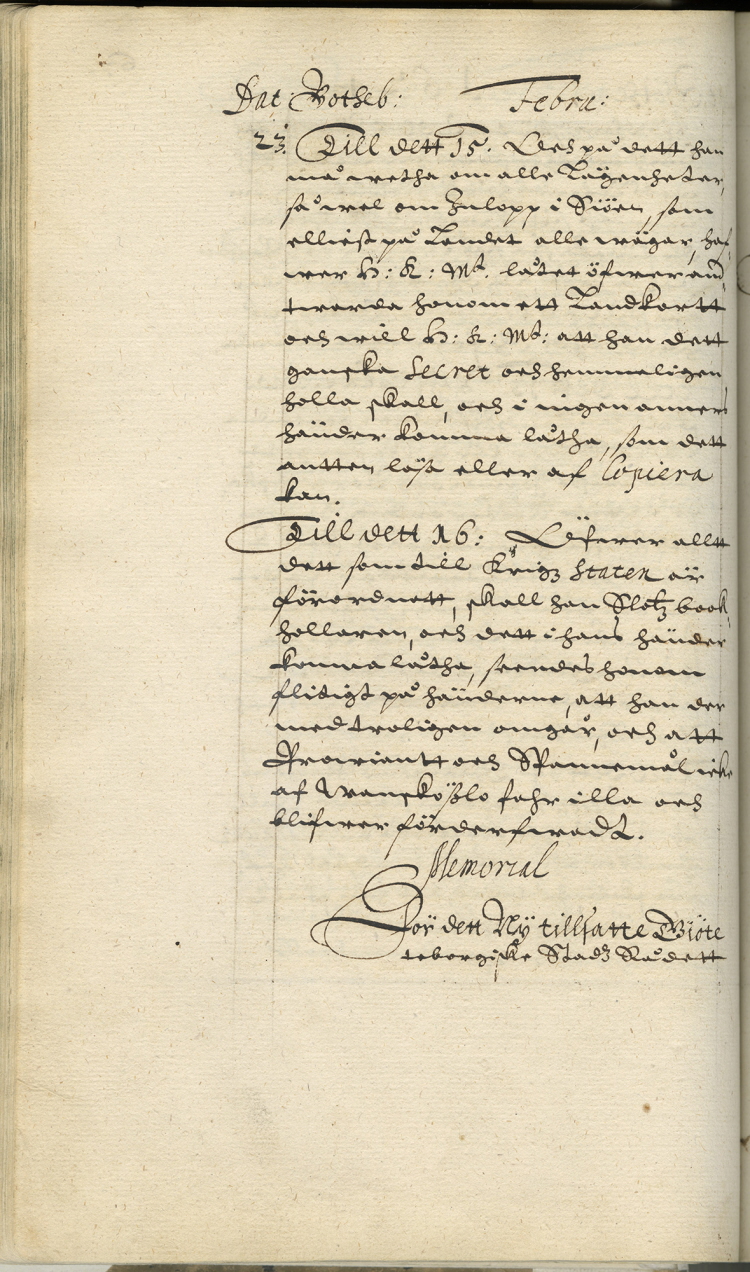 Dat: Botheb: Febru:
23. Till dett 15. Och på dett han
må wetha om alle Lägenheter,
så wel om Inlopp i Siöen, som
elliest på Landet alle wägar, haf
wer H: K: Mt. låtet öfwer and
twarda honom ett Landkortt
och will H: K: Mt: att han dett
ganska Secret och hemmeligen
holla skall, och i ingen anners
händer komma låtha, som dett
antten löst eller af Copiera
kan.
Till dett 16: Öfwer allt
dett som till Krigz Staten är
förordnett, skall han Slotz book
hollaren, och dett i hans händer
komma låtha, seendes honom
flitigt på händerne, att han der
med troligen omgår, och att
Prowiantt och Spannemål icke
af Wanskötzlo fahr illa och
blifwer förderfwadt.
Memorial
För dett Ny tillsatte Giöte
teborgiske Stadz Rådett